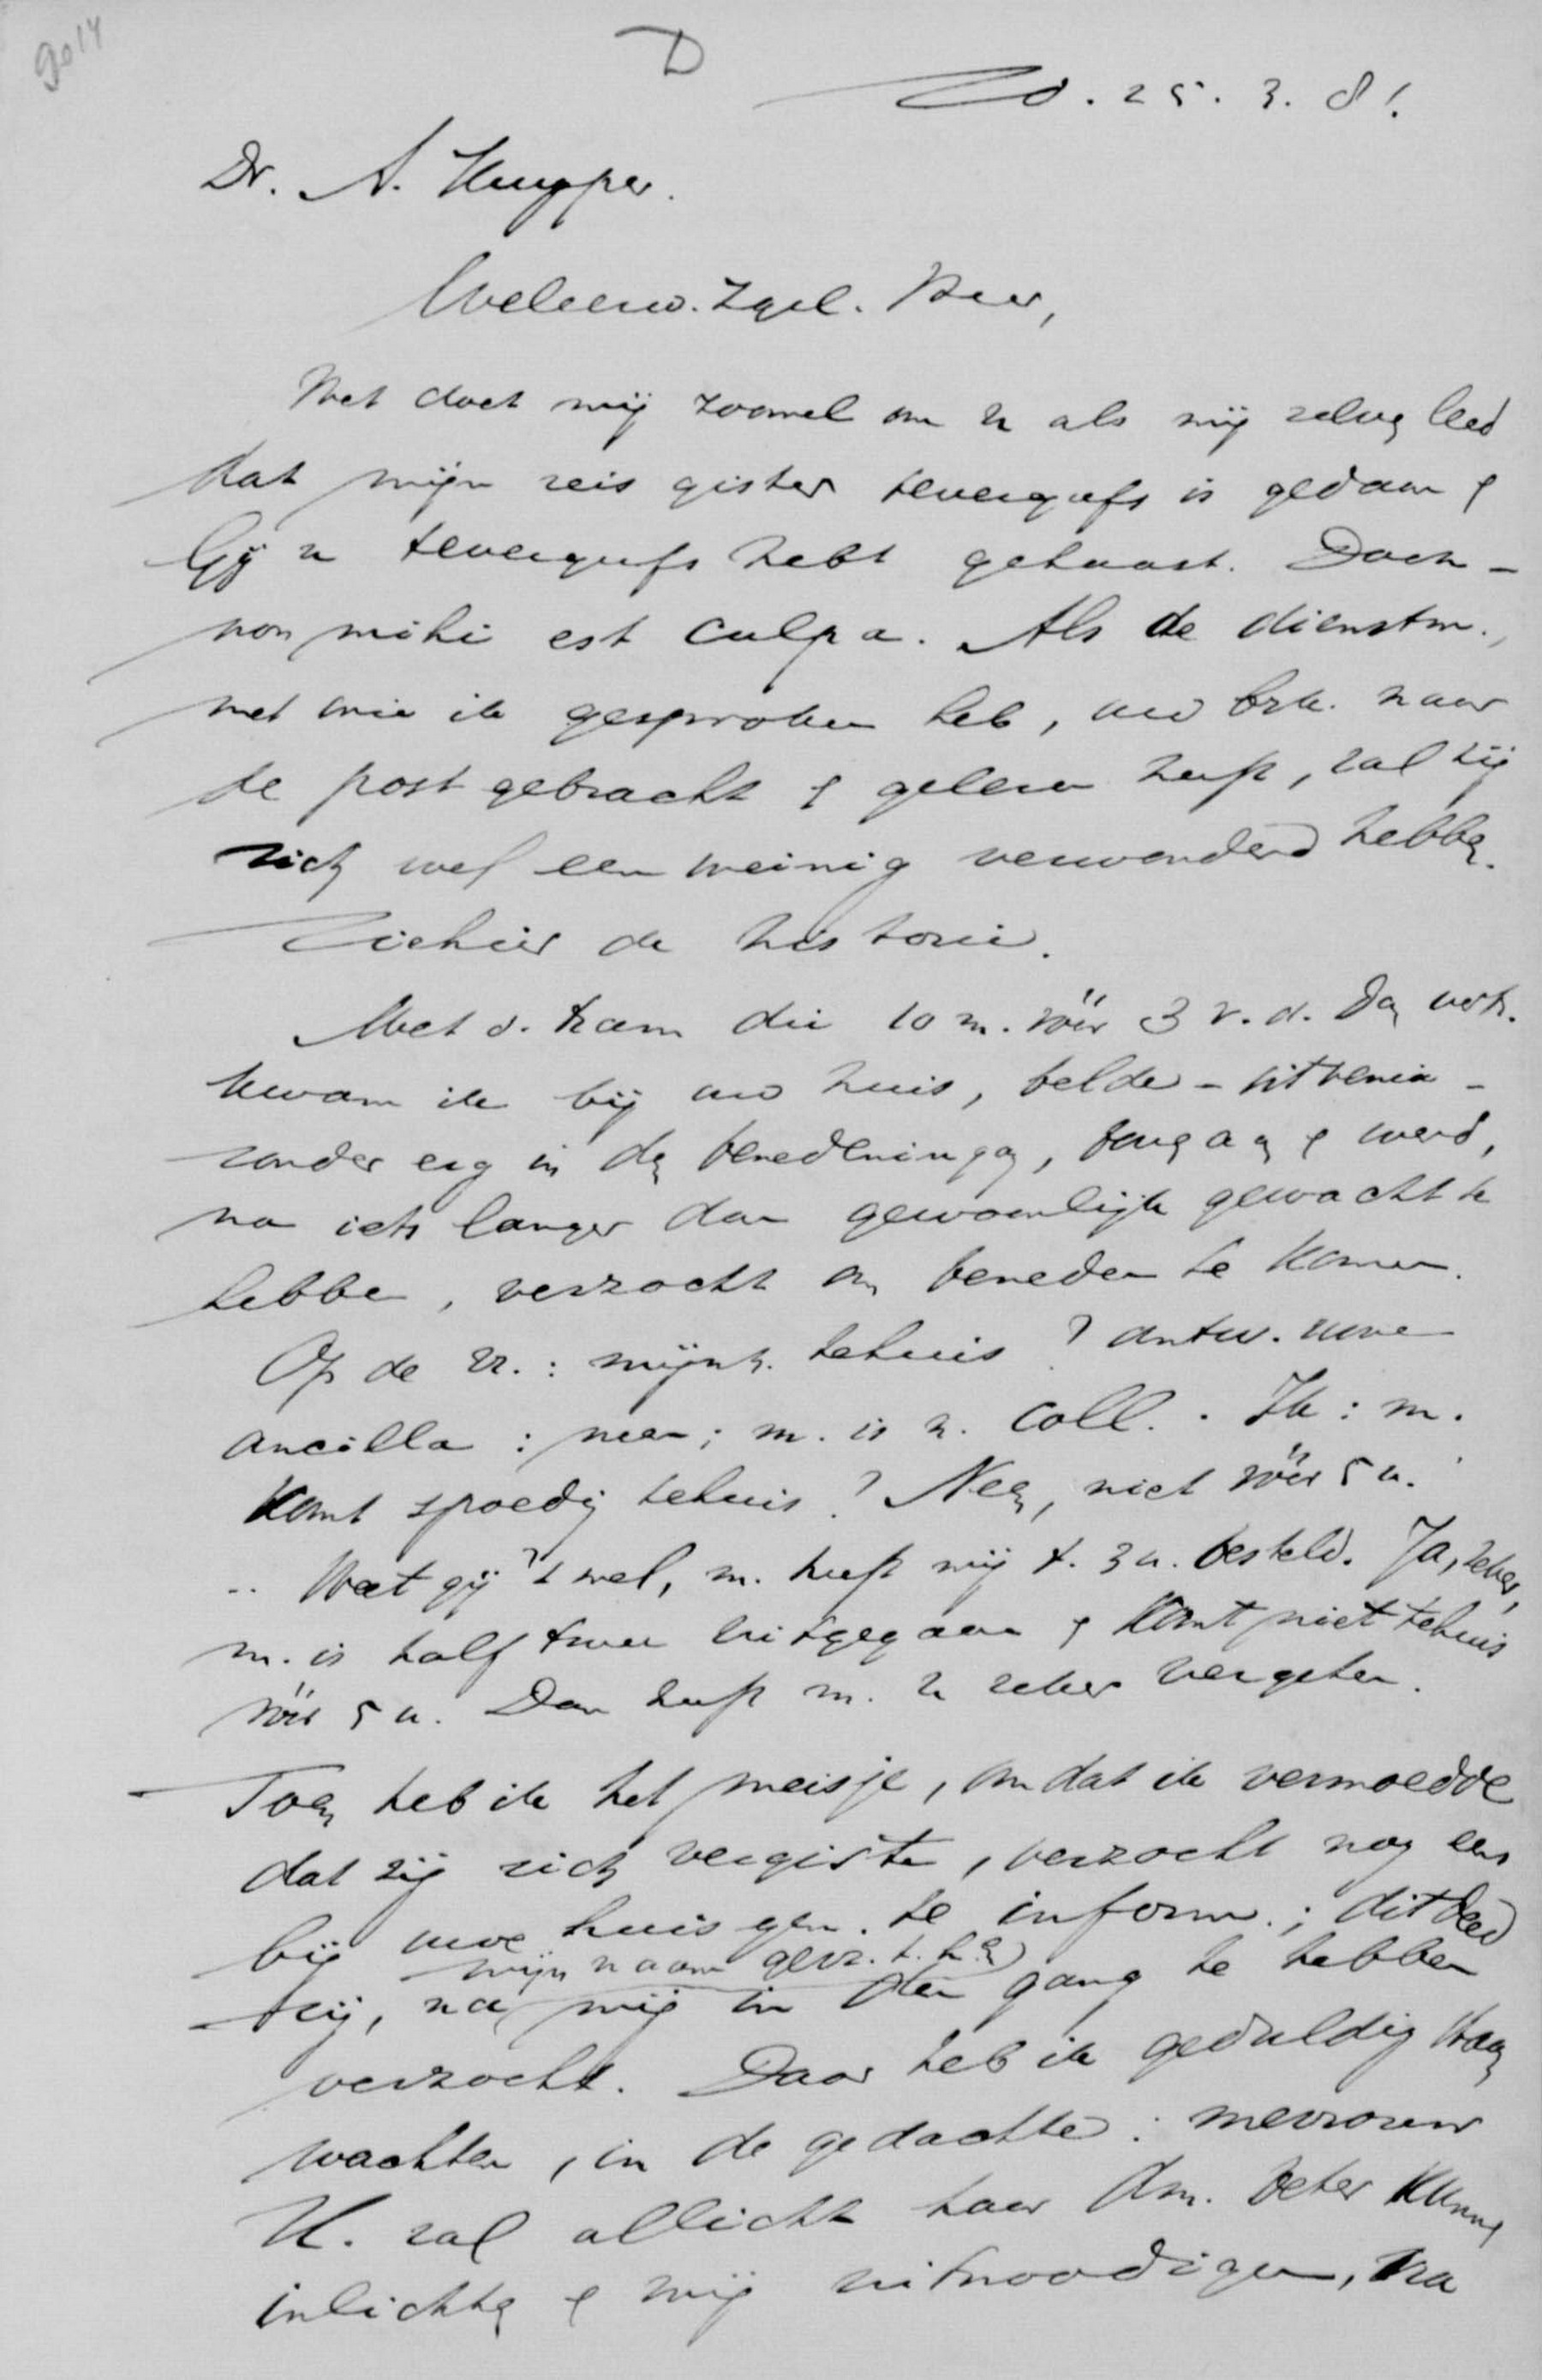 9014
D
Zd. 25. 3. 81.
Dr. A. Kuyper.
Weleerw. Zgel. Heer,
Het doet mij zoowel om U als mij zelve leed
dat mijn reis gister tevergeefs is gedaan &
Gij U tevergeefs hebt gehaast. Doch -
non mihi est culpa. Als de dienstm.,
met wie ik gesproken heb, uw brk. naar
de post gebracht & gelezen heeft, zal zij
zich wel een weinig verwonderd hebben.
Ziehier de historie.
Met d. tram die 10 m. vóór 3 v. d. Dam vertr.
kwam ik bij uw huis, belde - sit venia -
zonder erg in den benedeningang, boven aan & werd,
na iets langer dan gewoonlijk gewacht te
hebben, verzocht om beneden te komen.
Op de vr.: mijnh. tehuis? antw. uwe
ancilla: neen; m. is n. coll. . Ik: m.
komt spoedig tehuis? Neen, niet vóór 5 u.
.. Weet gij 't wel, m. heeft mij t. 3 u. besteld. Ja, zeker,
m. is half twee uitgegaan & komt niet tehuis
vóór 5 u. Dan heeft m. U zeker vergeten.
Toen heb ik het meisje, omdat ik vermoedde
dat zij zich vergiste, verzocht nog eens
bij uwe huisgen. te inform.; dit deed
mijn naam gevr. t. h.
zij, na mij in den gang te hebben
verzocht. Daar heb ik geduldig staan
wachten, in de gedachte: mevrouw
K. zal allicht haar dm. beter kunnen
inlichten & mij uitnoodigen, na